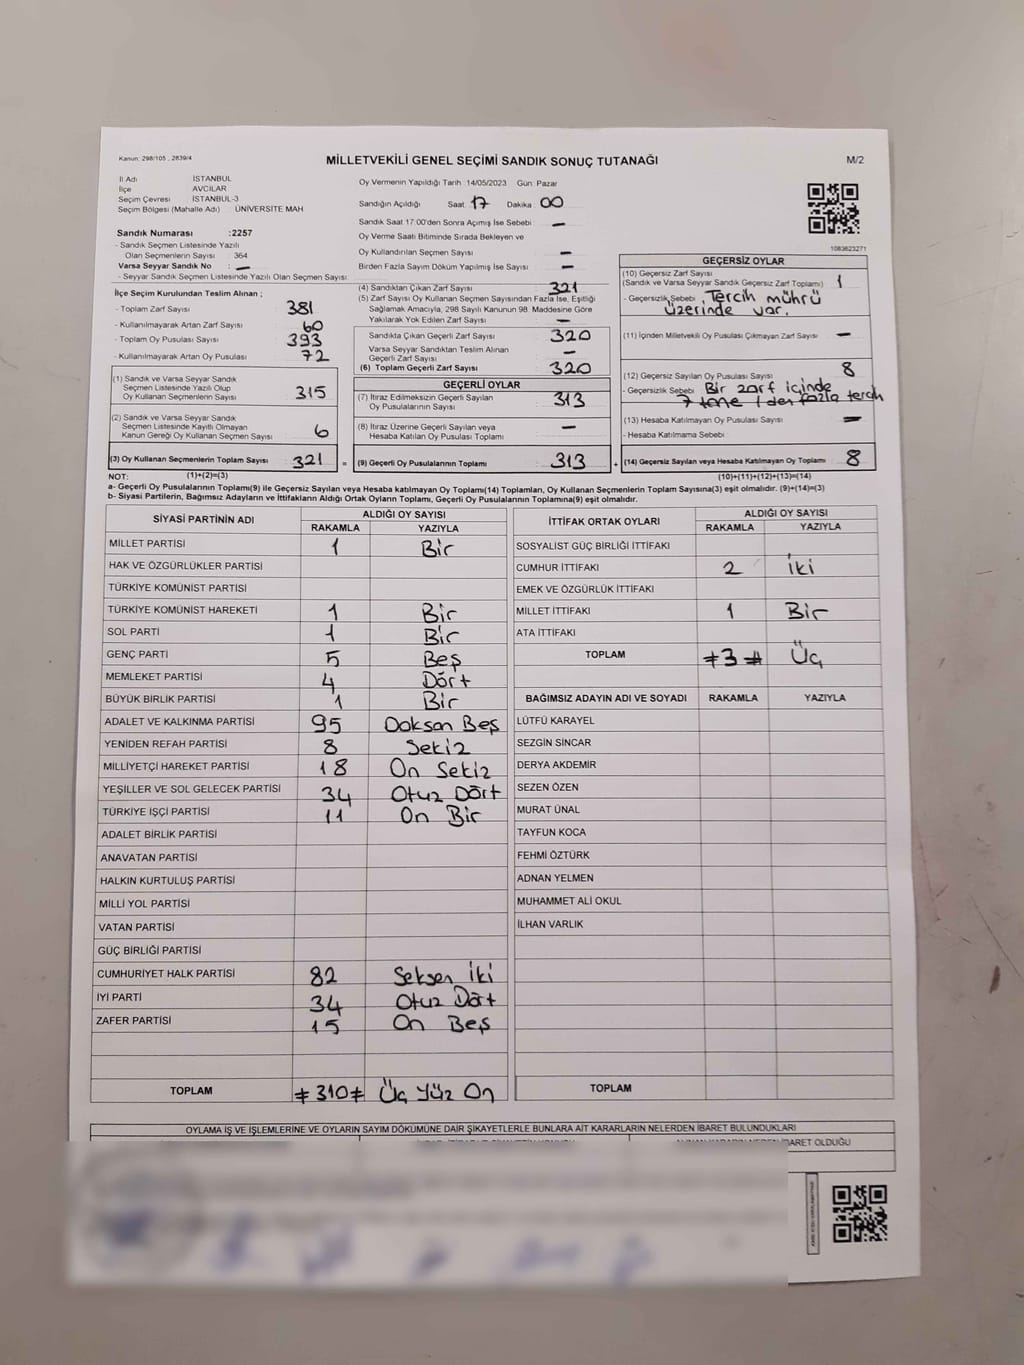 Kanun: 298/105 , 2839/4
MİLLETVEKİLİ GENEL SEÇİMİ SANDIK SONUÇ TUTANAĞI
M/2
İl Adı İSTANBUL
İlçe AVCILAR
Seçim Çevresi İSTANBUL-3
Seçim Bölgesi (Mahalle Adı) : ÜNİVERSİTE MAH
Sandık Numarası :2257
- Sandık Seçmen Listesinde Yazılı
Olan Seçmenlerin Sayısı : 364
Varsa Seyyar Sandık No : —
- Seyyar Sandık Seçmen Listesinde Yazılı Olan Seçmen Sayısı:
İlçe Seçim Kurulundan Teslim Alınan ;
- Toplam Zarf Sayısı 381
- Kullanılmayarak Artan Zarf Sayısı 60
- Toplam Oy Pusulası 393
- Kullanılmayarak Artan Oy Pusulası 72
(1) Sandık ve Varsa Seyyar Sandık
Seçmen Listesinde Yazılı Olup
Oy Kullanan Seçmenlerin Sayısı 315
(2) Sandık ve Varsa Seyyar Sandık
Seçmen Listesinde Kayıtlı Olmayan
Kanun Gereği Oy Kullanan Seçmen Sayısı 6
(3) Oy Kullanan Seçmenlerin Toplam Sayısı 321 =
Oy Vermenin Yapıldığı Tarih :14/05/2023 Gün: Pazar
Sandığın Açıldığı Saat: 17 Dakika : 00
Sandık Saat 17:00'den Sonra Açımış İse Sebebi : —
Oy Verme Saati Bitiminde Sırada Bekleyen ve
Oy Kullandırılan Seçmen Sayısı —
Birden Fazla Sayım Döküm Yapılmış İse Sayısı —
(4) Sandıktan Çıkan Zarf Sayısı 321
(5) Zarf Sayısı Oy Kullanan Seçmen Sayısından Fazla İse, Eşitliği
Sağlamak Amacıyla, 298 Sayılı Kanunun 98. Maddesine Göre
Yakılarak Yok Edilen Zarf Sayısı —
Sandıkta Çıkan Geçerli Zarf Sayısı 320
Varsa Seyyar Sandıktan Teslim Alınan
Geçerli Zarf Sayısı —
(6) Toplam Geçerli Zarf Sayısı 320
GEÇERLİ OYLAR
(7) İtiraz Edilmeksizin Geçerli Sayılan
Oy Pusulalarının Sayısı 313
(8) İtiraz Üzerine Geçerli Sayılan veya
Hesaba Katılan Oy Pusulası Toplamı —
(9) Geçerli Oy Pusulalarının Toplamı 313 +
1083623271
GEÇERSİZ OYLAR
(10) Geçersiz Zarf Sayısı
(Sandık ve Varsa Seyyar Sandık Geçersiz Zarf Toplamı) 1
- Geçersizlik Sebebi : Tercih mührü
üzerinde var.
(11) İçinden Milletvekili Oy Pusulası Çıkmayan Zarf Sayısı —
(12) Geçersiz Sayılan Oy Pusulası Sayısı 8
- Geçersizlik Sebebi : Bir zarf içinde
7 tane 1 den fazla tercih
(13) Hesaba Katılmayan Oy Pusulası Sayısı —
- Hesaba Katılmama Sebebi
(14) Geçersiz Sayılan veya Hesaba Katılmayan Oy Toplamı 8
NOT: (1)+(2)=(3) (10)+(11)+(12)+(13)=(14)
a- Geçerli Oy Pusulalarının Toplamı(9) ile Geçersiz Sayılan veya Hesaba katılmayan Oy Toplamı(14) Toplamları, Oy Kullanan Seçmenlerin Toplam Sayısına(3) eşit olmalıdır. (9)+(14)=(3)
b- Siyasi Partilerin, Bağımsız Adayların ve İttifakların Aldığı Ortak Oyların Toplamı, Geçerli Oy Pusulalarının Toplamına(9) eşit olmalıdır.
SİYASİ PARTİNİN ADI ALDIĞI OY SAYISI
RAKAMLA YAZIYLA
MİLLET PARTİSİ 1 Bir
HAK VE ÖZGÜRLÜKLER PARTİSİ
TÜRKİYE KOMÜNİST PARTİSİ
TÜRKİYE KOMÜNİST HAREKETİ 1 Bir
SOL PARTİ 1 Bir
GENÇ PARTİ 5 Beş
MEMLEKET PARTİSİ 4 Dört
BÜYÜK BİRLİK PARTİSİ 1 Bir
ADALET VE KALKINMA PARTİSİ 95 Doksan Beş
YENİDEN REFAH PARTİSİ 8 Sekiz
MİLLİYETÇİ HAREKET PARTİSİ 18 On Sekiz
YEŞİLLER VE SOL GELECEK PARTİSİ 34 Otuz Dört
TÜRKİYE İŞÇİ PARTİSİ 11 On Bir
ADALET BİRLİK PARTİSİ
ANAVATAN PARTİSİ
HALKIN KURTULUŞ PARTİSİ
MİLLİ YOL PARTİSİ
VATAN PARTİSİ
GÜÇ BİRLİĞİ PARTİSİ
CUMHURİYET HALK PARTİSİ 82 Seksen İki
İYİ PARTİ 34 Otuz Dört
ZAFER PARTİSİ 15 On Beş
TOPLAM ≠310≠ Üç Yüz On
İTTİFAK ORTAK OYLARI ALDIĞI OY SAYISI
RAKAMLA YAZIYLA
SOSYALİST GÜÇ BİRLİĞİ İTTİFAKI
CUMHUR İTTİFAKI 2 İki
EMEK VE ÖZGÜRLÜK İTTİFAKI
MİLLET İTTİFAKI 1 Bir
ATA İTTİFAKI
TOPLAM ≠3≠ Üç
BAĞIMSIZ ADAYIN ADI VE SOYADI RAKAMLA YAZIYLA
LÜTFÜ KARAYEL
SEZGİN SİNCAR
DERYA AKDEMİR
SEZEN ÖZEN
MURAT ÜNAL
TAYFUN KOCA
FEHMİ ÖZTÜRK
ADNAN YELMEN
MUHAMMET ALİ OKUL
İLHAN VARLIK
TOPLAM
OYLAMA İŞ VE İŞLEMLERİNE VE OYLARIN SAYIM DÖKÜMÜNE DAİR ŞİKAYETLERLE BUNLARA AİT KARARLARIN NELERDEN İBARET BULUNDUKLARI
OLDUĞU